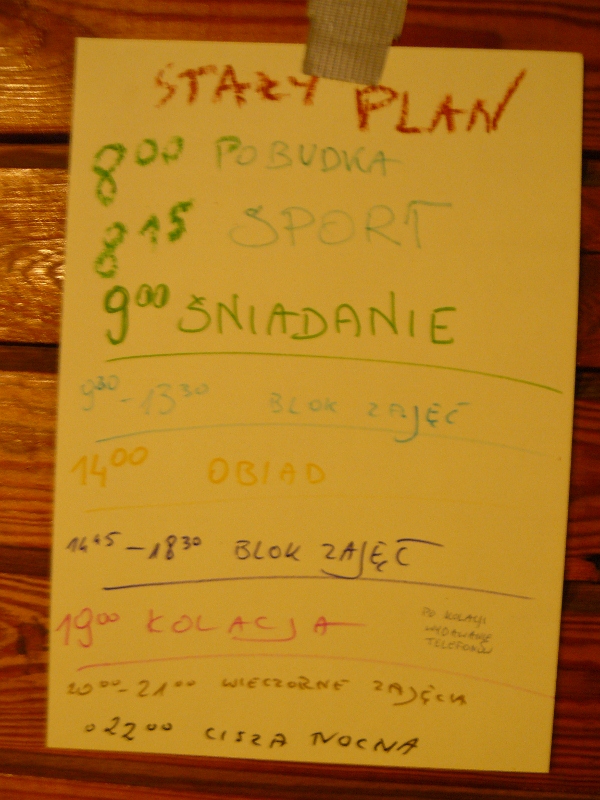 STAŁY PLAN
8⁰⁰ POBUDKA
8¹⁵ SPORT
9⁰⁰ ŚNIADANIE
9³⁰-13³⁰ BLOK ZAJĘĆ
14⁰⁰ OBIAD
14⁴⁵-18³⁰ BLOK ZAJĘĆ
19⁰⁰ KOLACJA
PO KOLACJI
WYDAWANIE
TELEFONÓW
20⁰⁰-21⁰⁰ WIECZORNE ZAJĘCIA
o 22⁰⁰ CISZA NOCNA